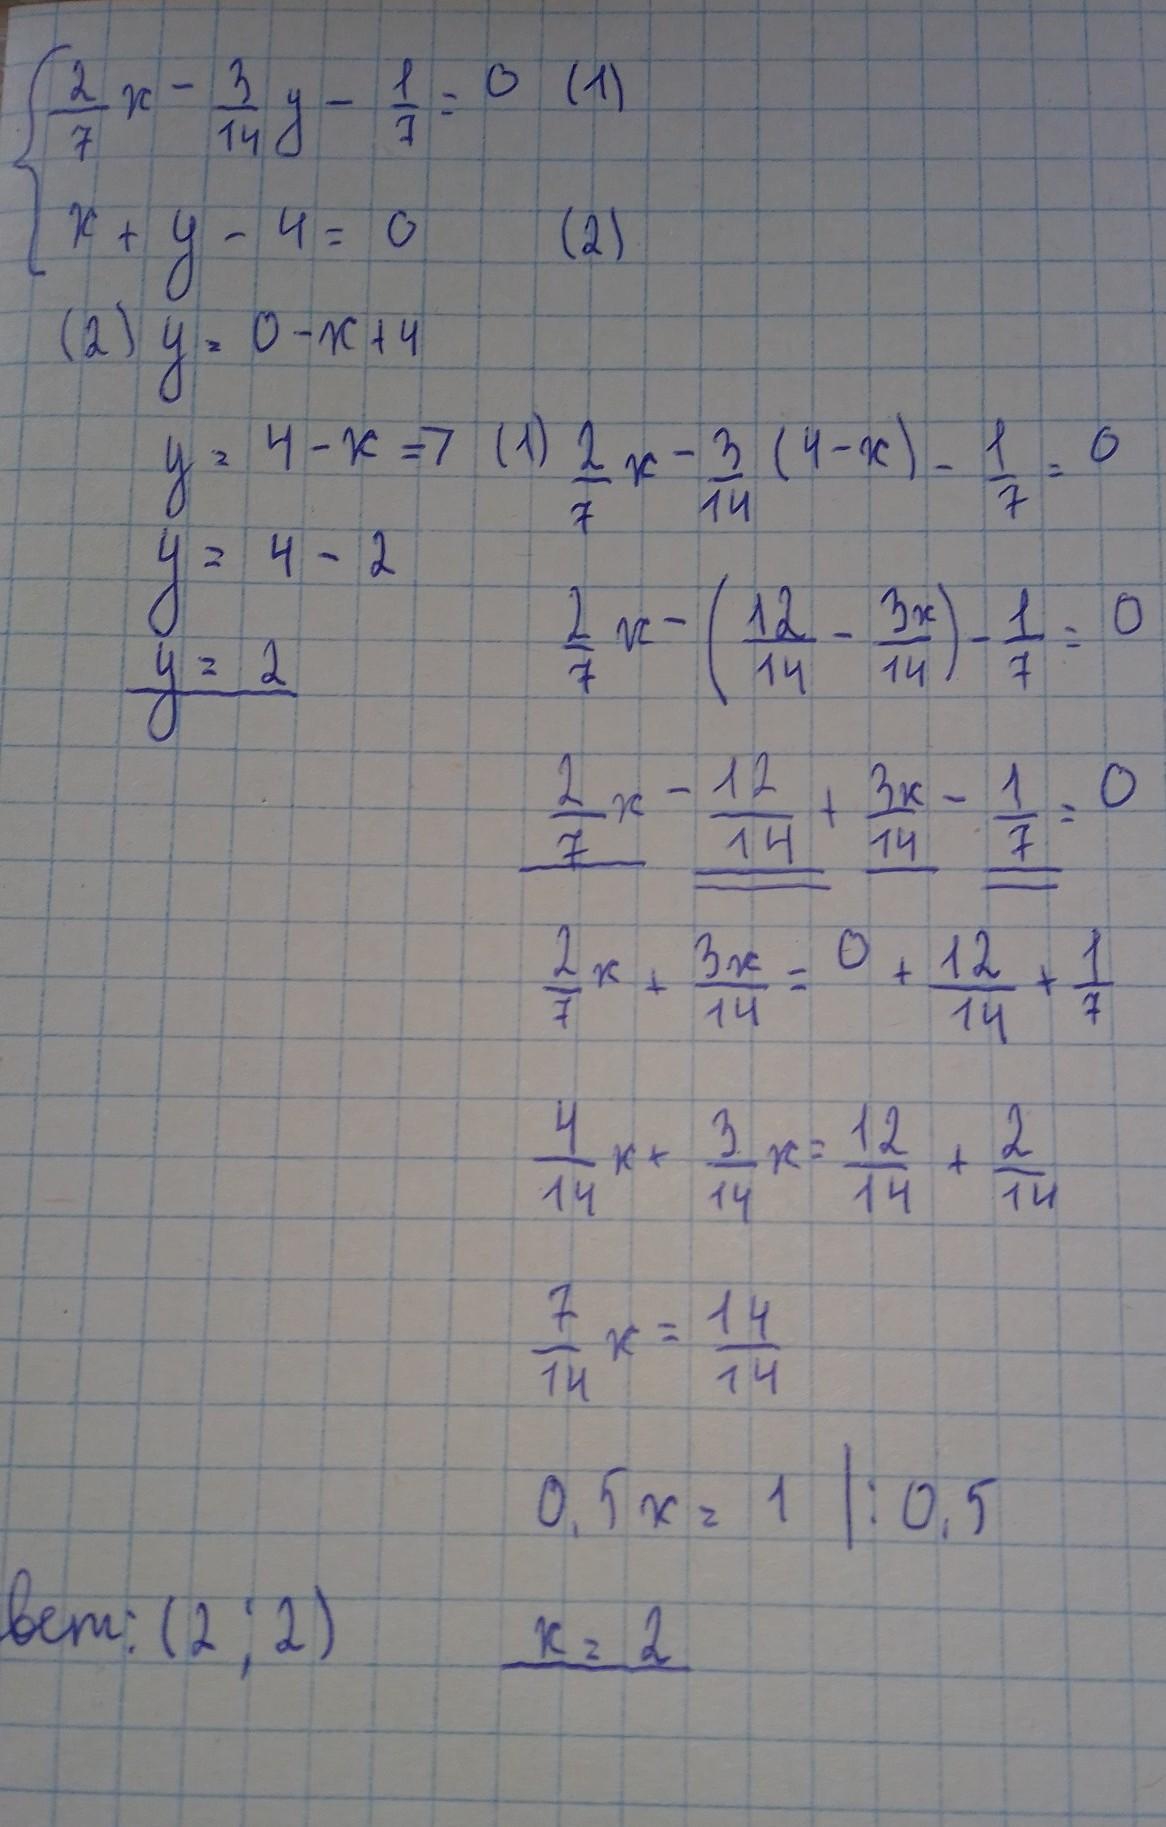 2/7 x - 3/14 y - 1/7 = 0 (1)
x + y - 4 = 0 (2)
(2) y = 0 - x + 4
y = 4 - x => (1) 2/7 x - 3/14 (4 - x) - 1/7 = 0
y = 4 - 2
2/7 x - (12/14 - 3x/14) - 1/7 = 0
y = 2
2/7 x - 12/14 + 3x/14 - 1/7 = 0
2/7 x + 3x/14 = 0 + 12/14 + 1/7
4/14 x + 3/14 x = 12/14 + 2/14
7/14 x = 14/14
0,5x = 1 |: 0,5
вет: (2 ; 2) x = 2